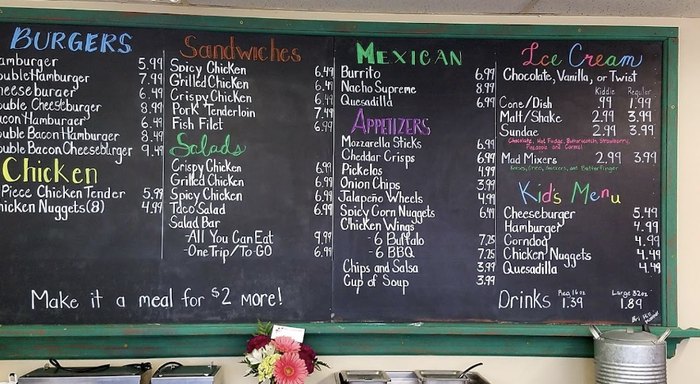 BURGERS
amburger 5.99
oubleHamburger 7.99
heeseburger 6.49
ouble Cheeseburger 8.99
acon Hamburger 6.49
ouble Bacon Hamburger 8.49
ouble Bacon Cheeseburger 9.49
Chicken
Piece Chicken Tender 5.99
hicken Nuggets(8) 4.99
Sandwiches
Spicy Chicken 6.49
Grilled Chicken 6.49
Crispy Chicken 6.49
Pork Tenderloin 7.49
Fish Filet 6.99
Salads
Crispy Chicken 6.99
Grilled Chicken 6.99
Spicy Chicken 6.99
Taco Salad 6.99
Salad Bar
-All You Can Eat 9.99
-One Trip/To-GO 6.99
Make it a meal for $2 more!
MEXICAN
Burrito 6.99
Nacho Supreme 8.99
Quesadilla 6.99
APPETIZERS
Mozzarella Sticks 6.99
Cheddar Crisps 6.99
Pickelos 4.99
Onion Chips 3.99
Jalapeño Wheels 4.99
Spicy Corn Nuggets 6.49
Chicken Wings
-6 Buffalo 7.25
-6 BBQ 7.25
Chips and Salsa 3.99
Cup of Soup 3.99
Ice Cream
Chocolate, Vanilla, or Twist
Kiddie Regular
Cone/Dish .99 1.99
Malt/Shake 2.99 3.99
Sundae 2.99 3.99
Chocolate, Hot Fudge, Butterscotch, Strawberry,
Pineapple and Caramel
Mad Mixers 2.99 3.99
Reeses, Oreo, Snickers, and Butterfinger
Kid's Menu
Cheeseburger 5.49
Hamburger 4.99
Corndog 4.99
Chicken Nuggets 4.49
Quesadilla 4.49
Drinks Reg 16oz 1.39 Large 32oz 1.89